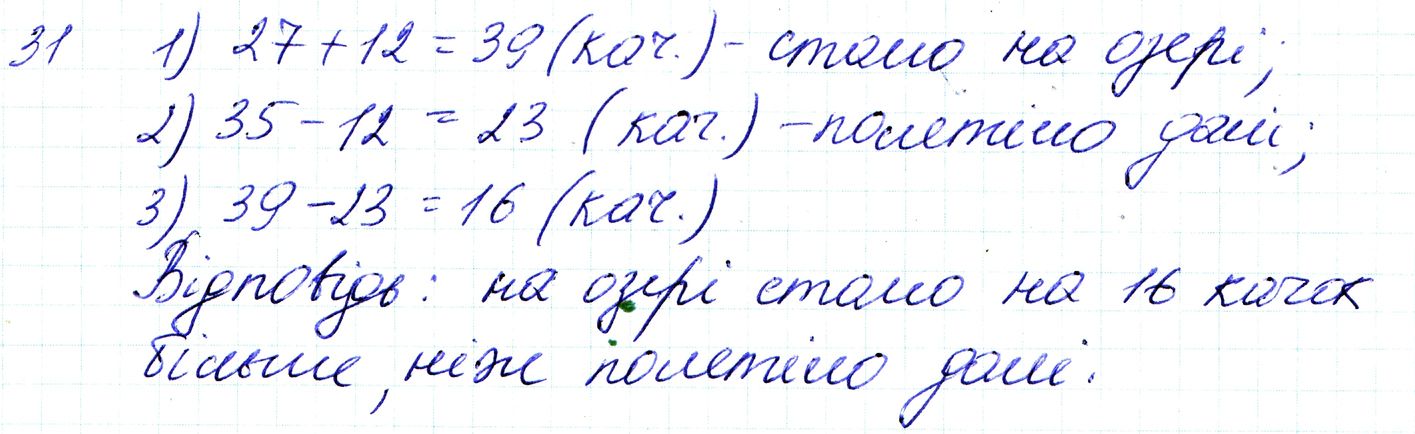 31 1) 27 + 12 = 39 (кач.) - стало на озері;
2) 35 - 12 = 23 (кач.) - полетіло далі;
3) 39 - 23 = 16 (кач.)
Відповідь: на озері стало на 16 качок
більше, ніж полетіло далі.